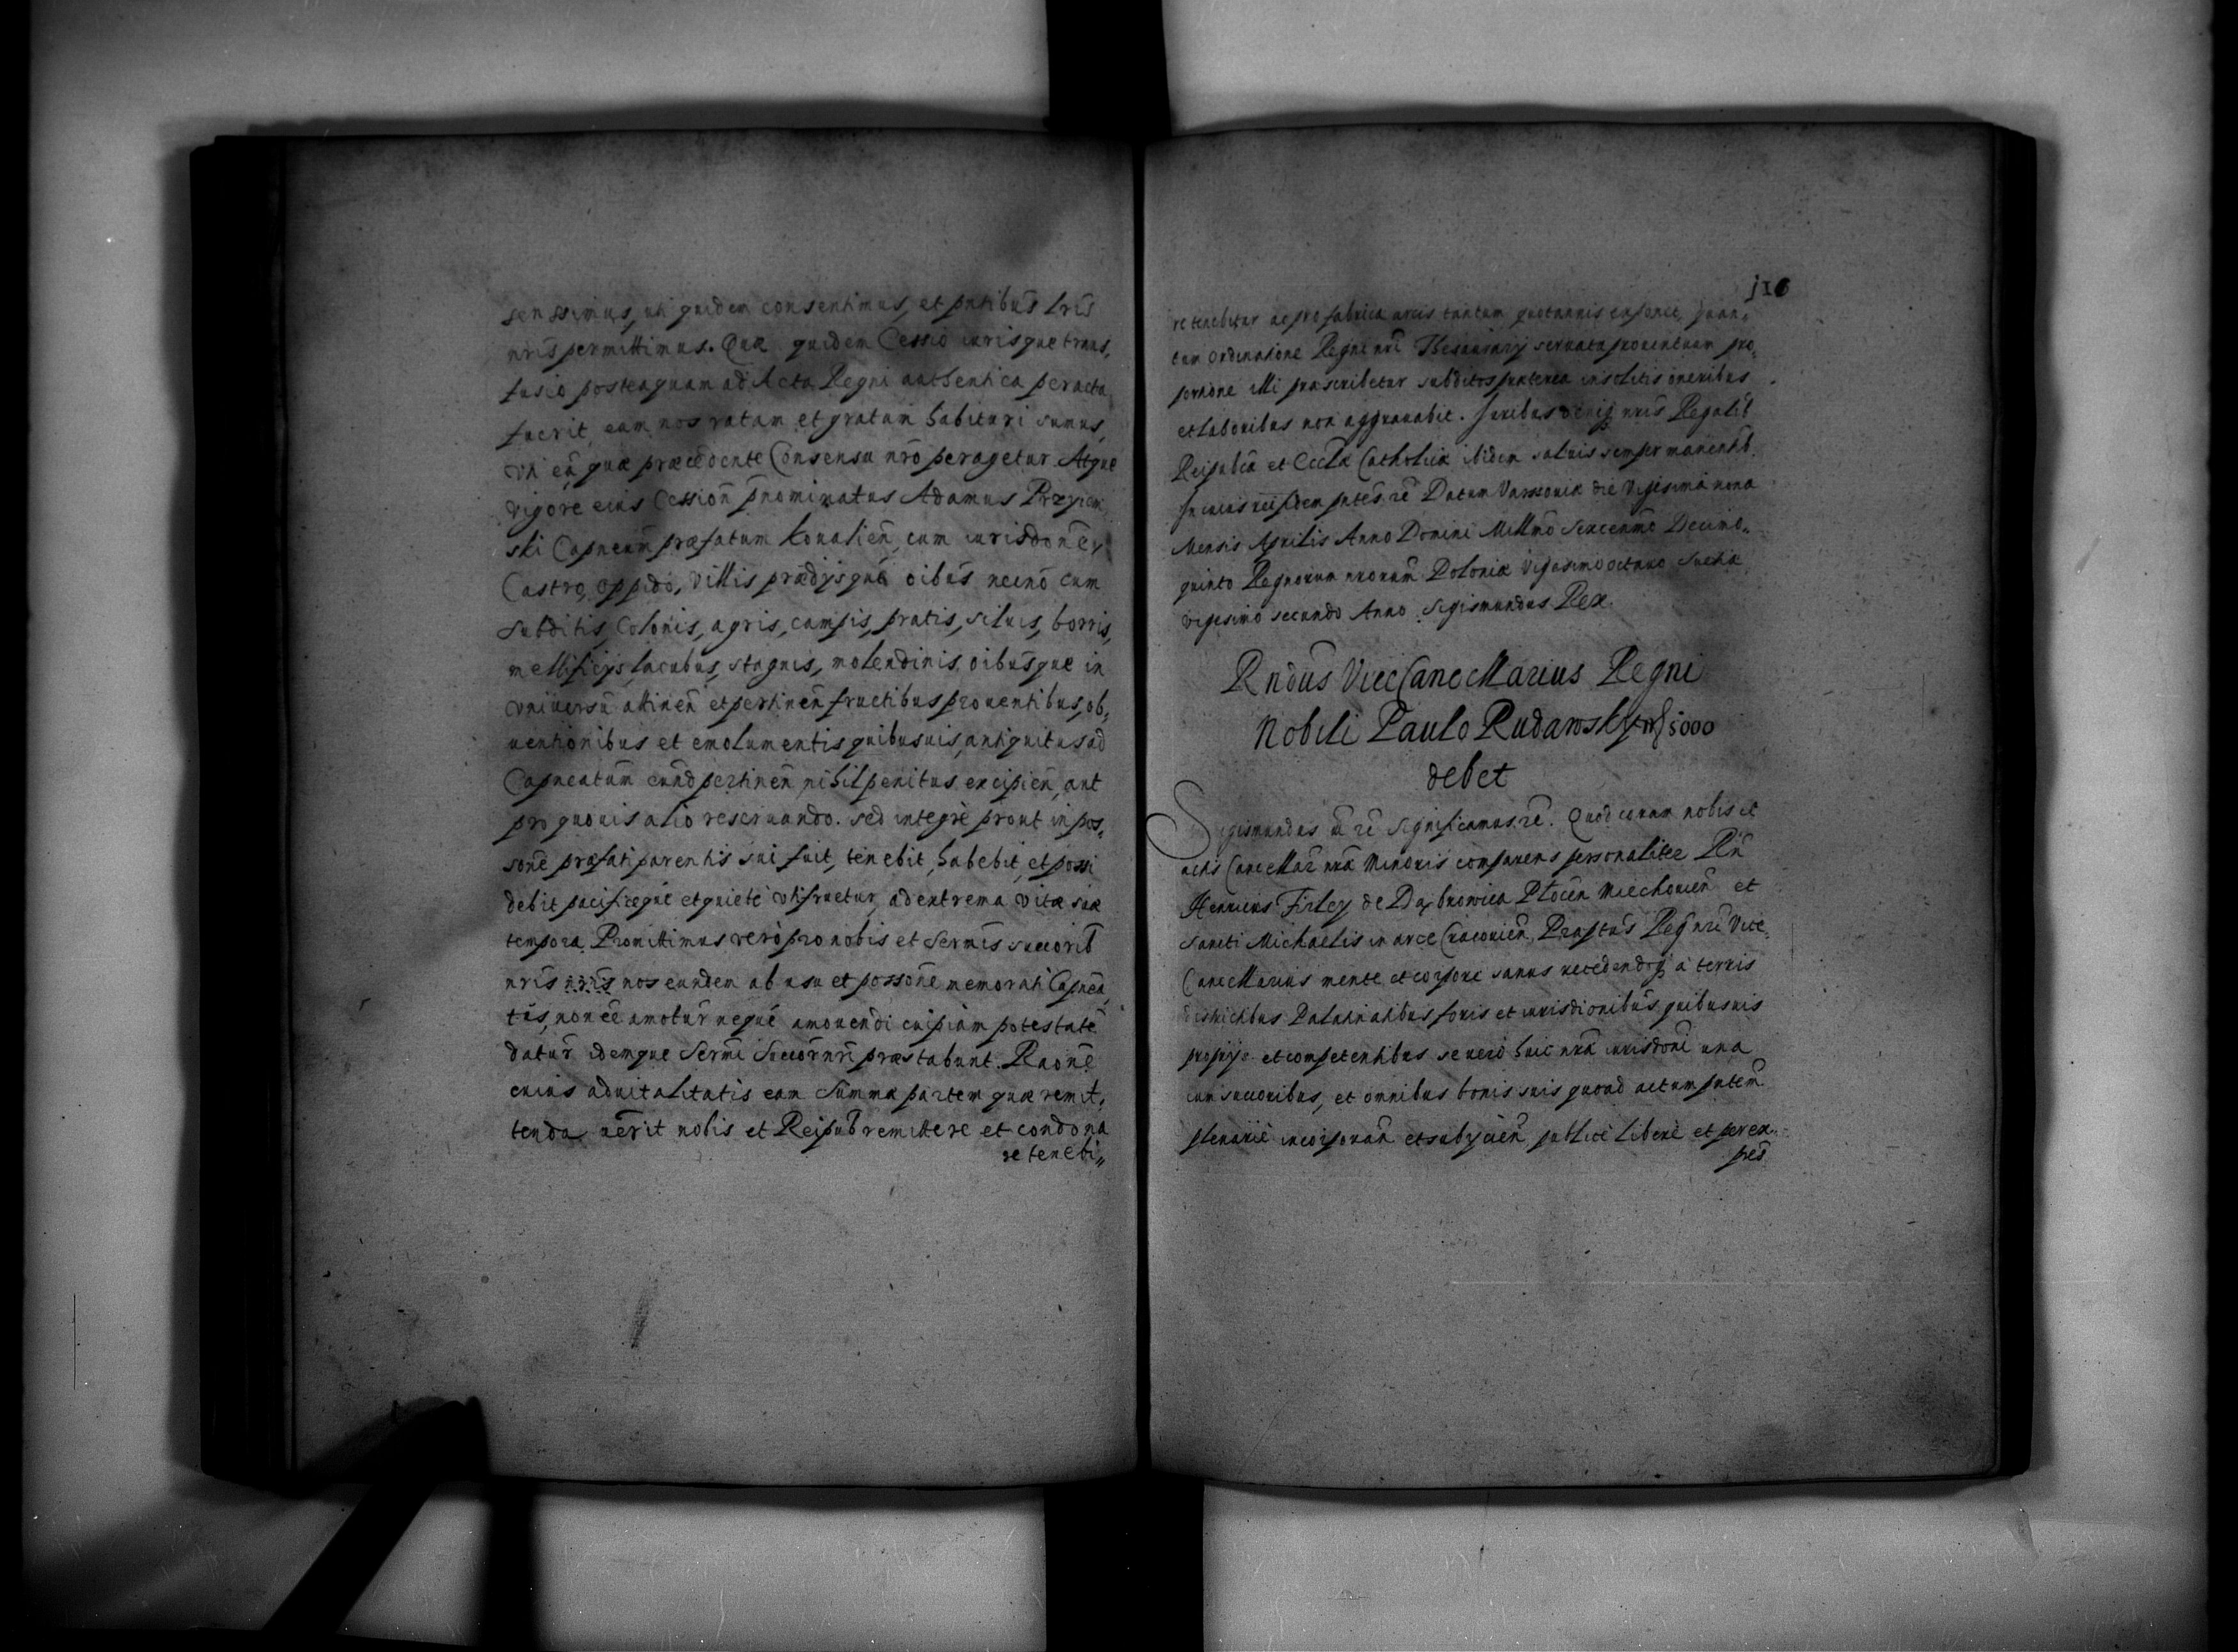 sensimus, uti quidem consentimus, et pntibus lris
nris permittimus. Quæ quidem Cessio iurisque trans,
fusio posteaquam ad Acta Regni authentica peracta
fuerit, eam nos ratam et gratam habituri sumus,
uti eã, quæ præcedente Consensu nrõ peragetur. Atque
vigore eius Cession pnominatus Adamus Przyiem
ski Capneum præfatum Kovalien, cum iurisdone,
Castro, oppido, Villis prædijsque oibus necno cum
subditis, Colonis, agris, campis, pratis, siluis, borris,
mellificijs, lacubus, stagnis, molendinis, oibusque in
vniuersu attinen et pertinen fructibus prouentibus, ob,
uentionibus et emolumentis quibusuis, antiquitus ad
Capneatum eund pertinen, nihil penitus excipien, aut
pro quouis alio reseruando. sed integre prout in pos,
sone præfati parentis sui fuit, tenebit, habebit, et possi
debit pacificeque et quiete utifruetur, ad extrema vitæ suæ
tempora. Promittimus vero pro nobis et Sermis succorib
nris nris nos eundem ab usu et possone memorati Capnea,
tus, non ee amotur neque amouendi cuipiam potestate
datur idemque Sermi Succor nri præstabunt. Raone
cuius aduitalitatis eam Summæ partem quæ remit,
tenda uerit nobis et Reipub remittere et condona
re tenebi„
116
re tenebitur ac pro fabrica arcis tantum quotannis exponet, quan,
tum Ordinatione Regni nri Thesaurarij seruata prouentuum pro,
portione illi præscribetur subditos præterea insolitis oneribus
et laboribus non aggrauabit. Juribus deniq nris Regalib
Reipubcæ et Eccla Catholicæ ibidem saluis semper manentib.
In cuius rei fidem pntes re Datum Varsouiæ die Vigesima nona
Mensis Aprilis Anno Domini Millmo Sexcenmo Decimo„
quinto Regnorum nrorum Poloniæ vigesimo octauo Sueciæ
vigesimo secundo Anno. Sigismundus Rex.
Rndus ViceCancellarius Regni
Nobili Paulo Rudawsky mf 5000
debet
Sigismundus ut re Significamus re. Quod coram nobis et
actis Cancellar nræ Minoris comparens personaliter Rn
Henricus Firley de Dąbrowica Plocen Miechouien et
Sancti Michaelis in arce Cracouien Præptus Reg nri Vice„
Cancellarius mente et corpore sanus recedendoq a terris
districtibus Palatinatibus foris et iurisdionibus quibusuis
proprijs et competentibus se vero huic nræ iurisdoni una
cum succoribus, et omnibus bonis suis quoad actum pntem
plenarie incorporan et subijcien, publice libere et per ex„
pres